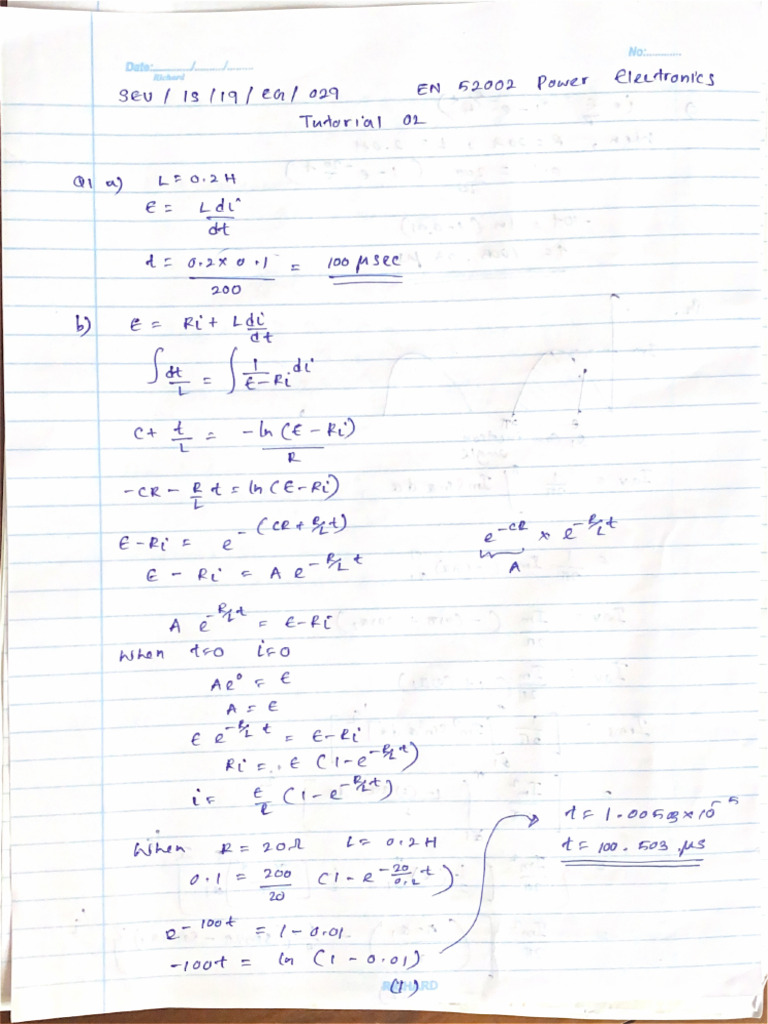 Date:............/........./.........
No:............
Richard
SEU / IS / 19 / EG / 029 EN 52002 Power Electronics
Tutorial 02
Q1 a) L = 0.2 H
E = L di/dt
t = 0.2 x 0.1 / 200 = 100 μsec
b) E = Ri + L di/dt
∫ dt/L = ∫ 1/(E - Ri) di
C + t/L = -ln (E - Ri) / R
-CR - R/L t = ln (E - Ri)
E - Ri = e^-(CR + R/L t) e^-CR x e^-R/L t
E - Ri = A e^-R/L t A
A e^-R/L t = E - Ri
When t=0 i=0
Ae^0 = E
A = E
E e^-R/L t = E - Ri
Ri = E (1 - e^-R/L t)
i = E/R (1 - e^-R/L t)
When R = 20Ω L = 0.2H
0.1 = 200/20 (1 - e^-20/0.2 t)
e^-100t = 1 - 0.01
-100t = ln (1 - 0.01)
t = 1.00503 x 10^-5
t = 100.503 μs
(1)
RICHARD